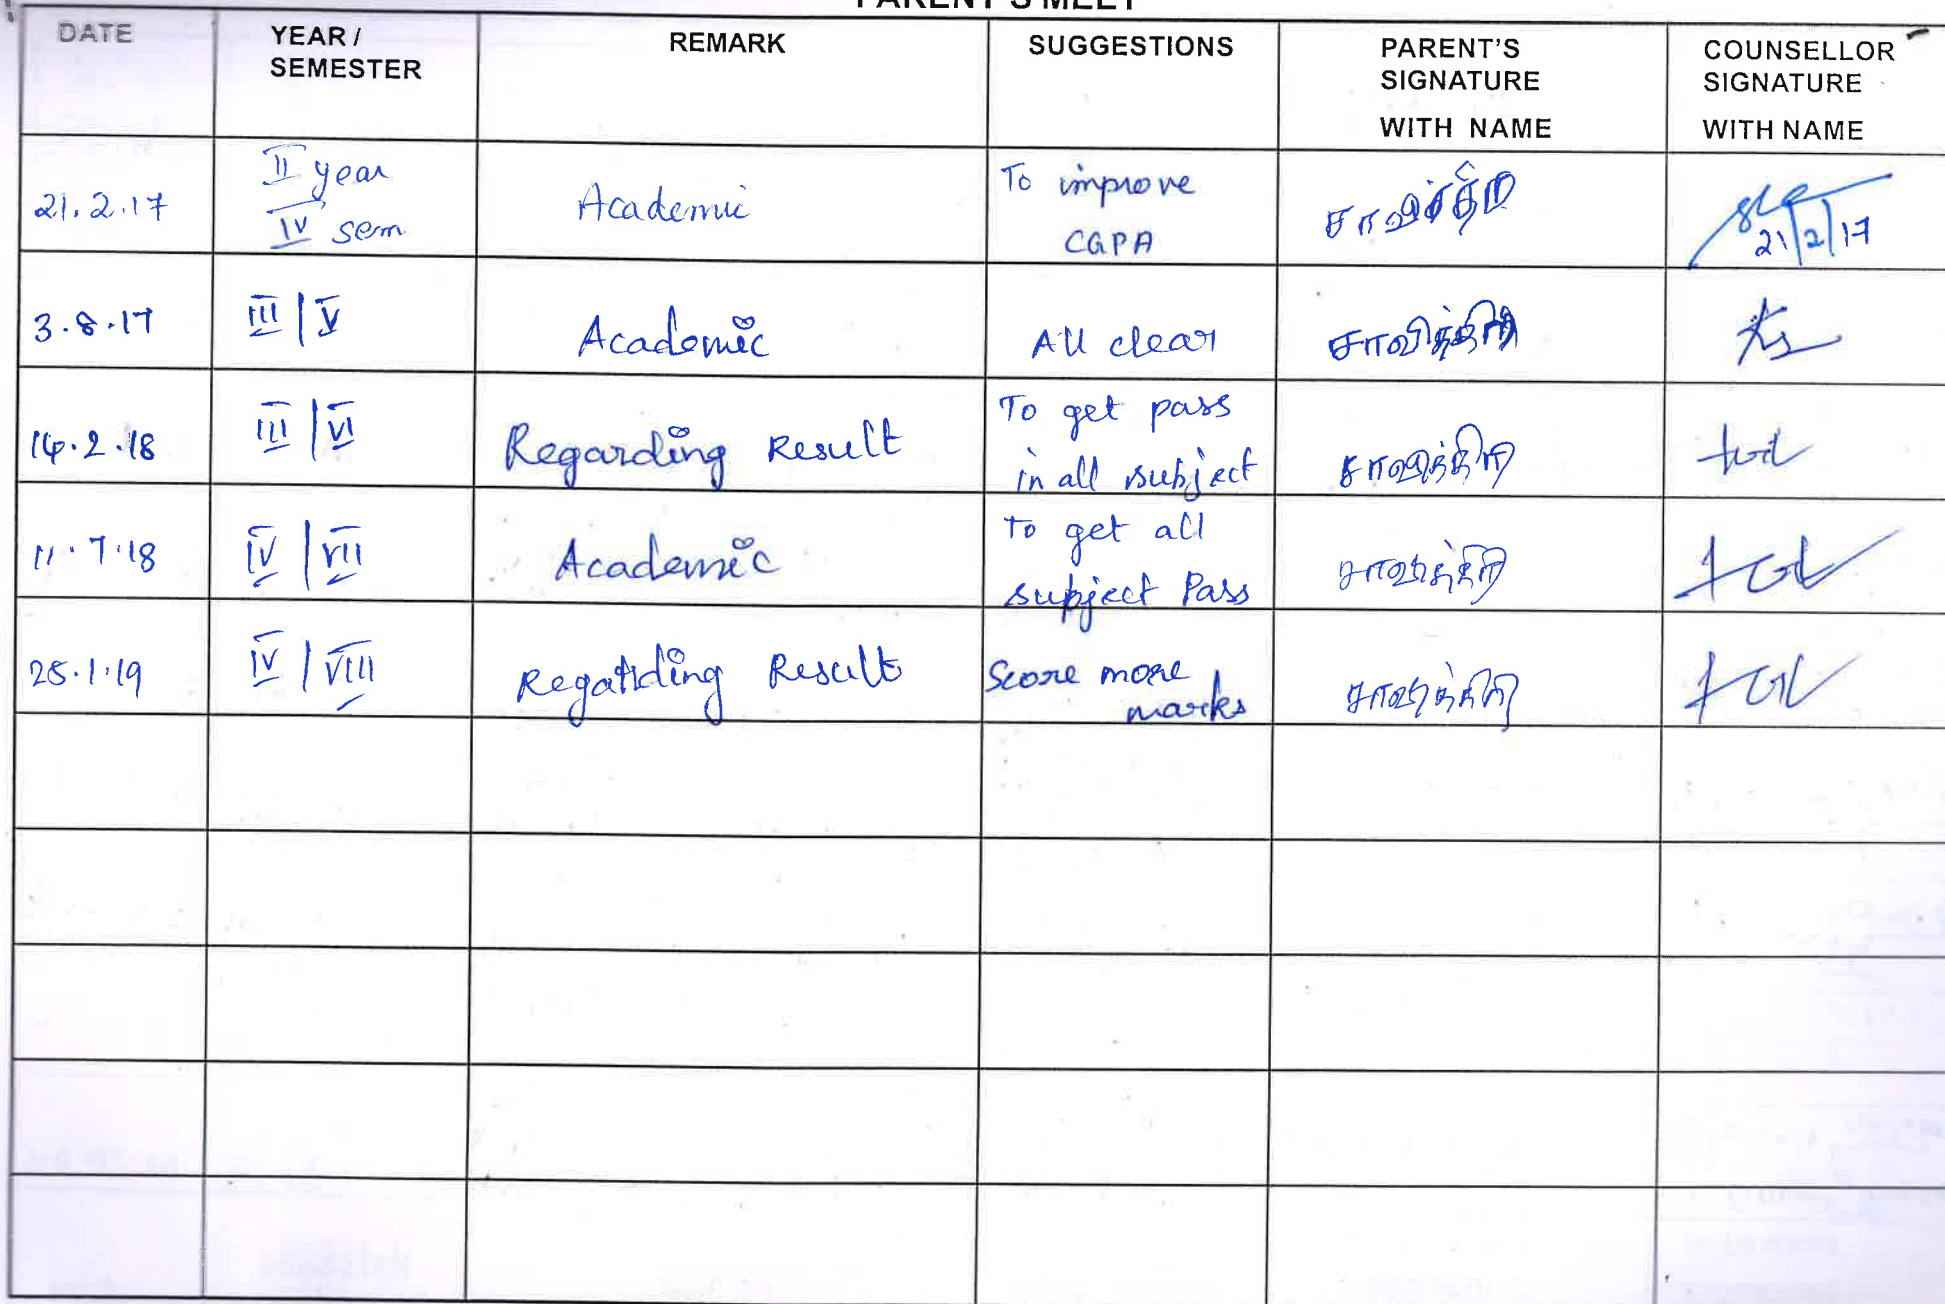 PARENT'S MEET
DATE YEAR / SEMESTER REMARK SUGGESTIONS PARENT'S SIGNATURE WITH NAME COUNSELLOR SIGNATURE WITH NAME
21.2.17 II year IV sem Academic To improve CGPA சாவித்திரி 21/2/17
3.8.17 III | V Academic All clear சாவித்திரி
14.2.18 III | VI Regarding Result To get pass in all subject சாவித்திரி
11.7.18 IV | VII Academic To get all subject Pass சாவித்திரி
25.1.19 IV | VIII Regarding Result Score more marks சாவித்திரி